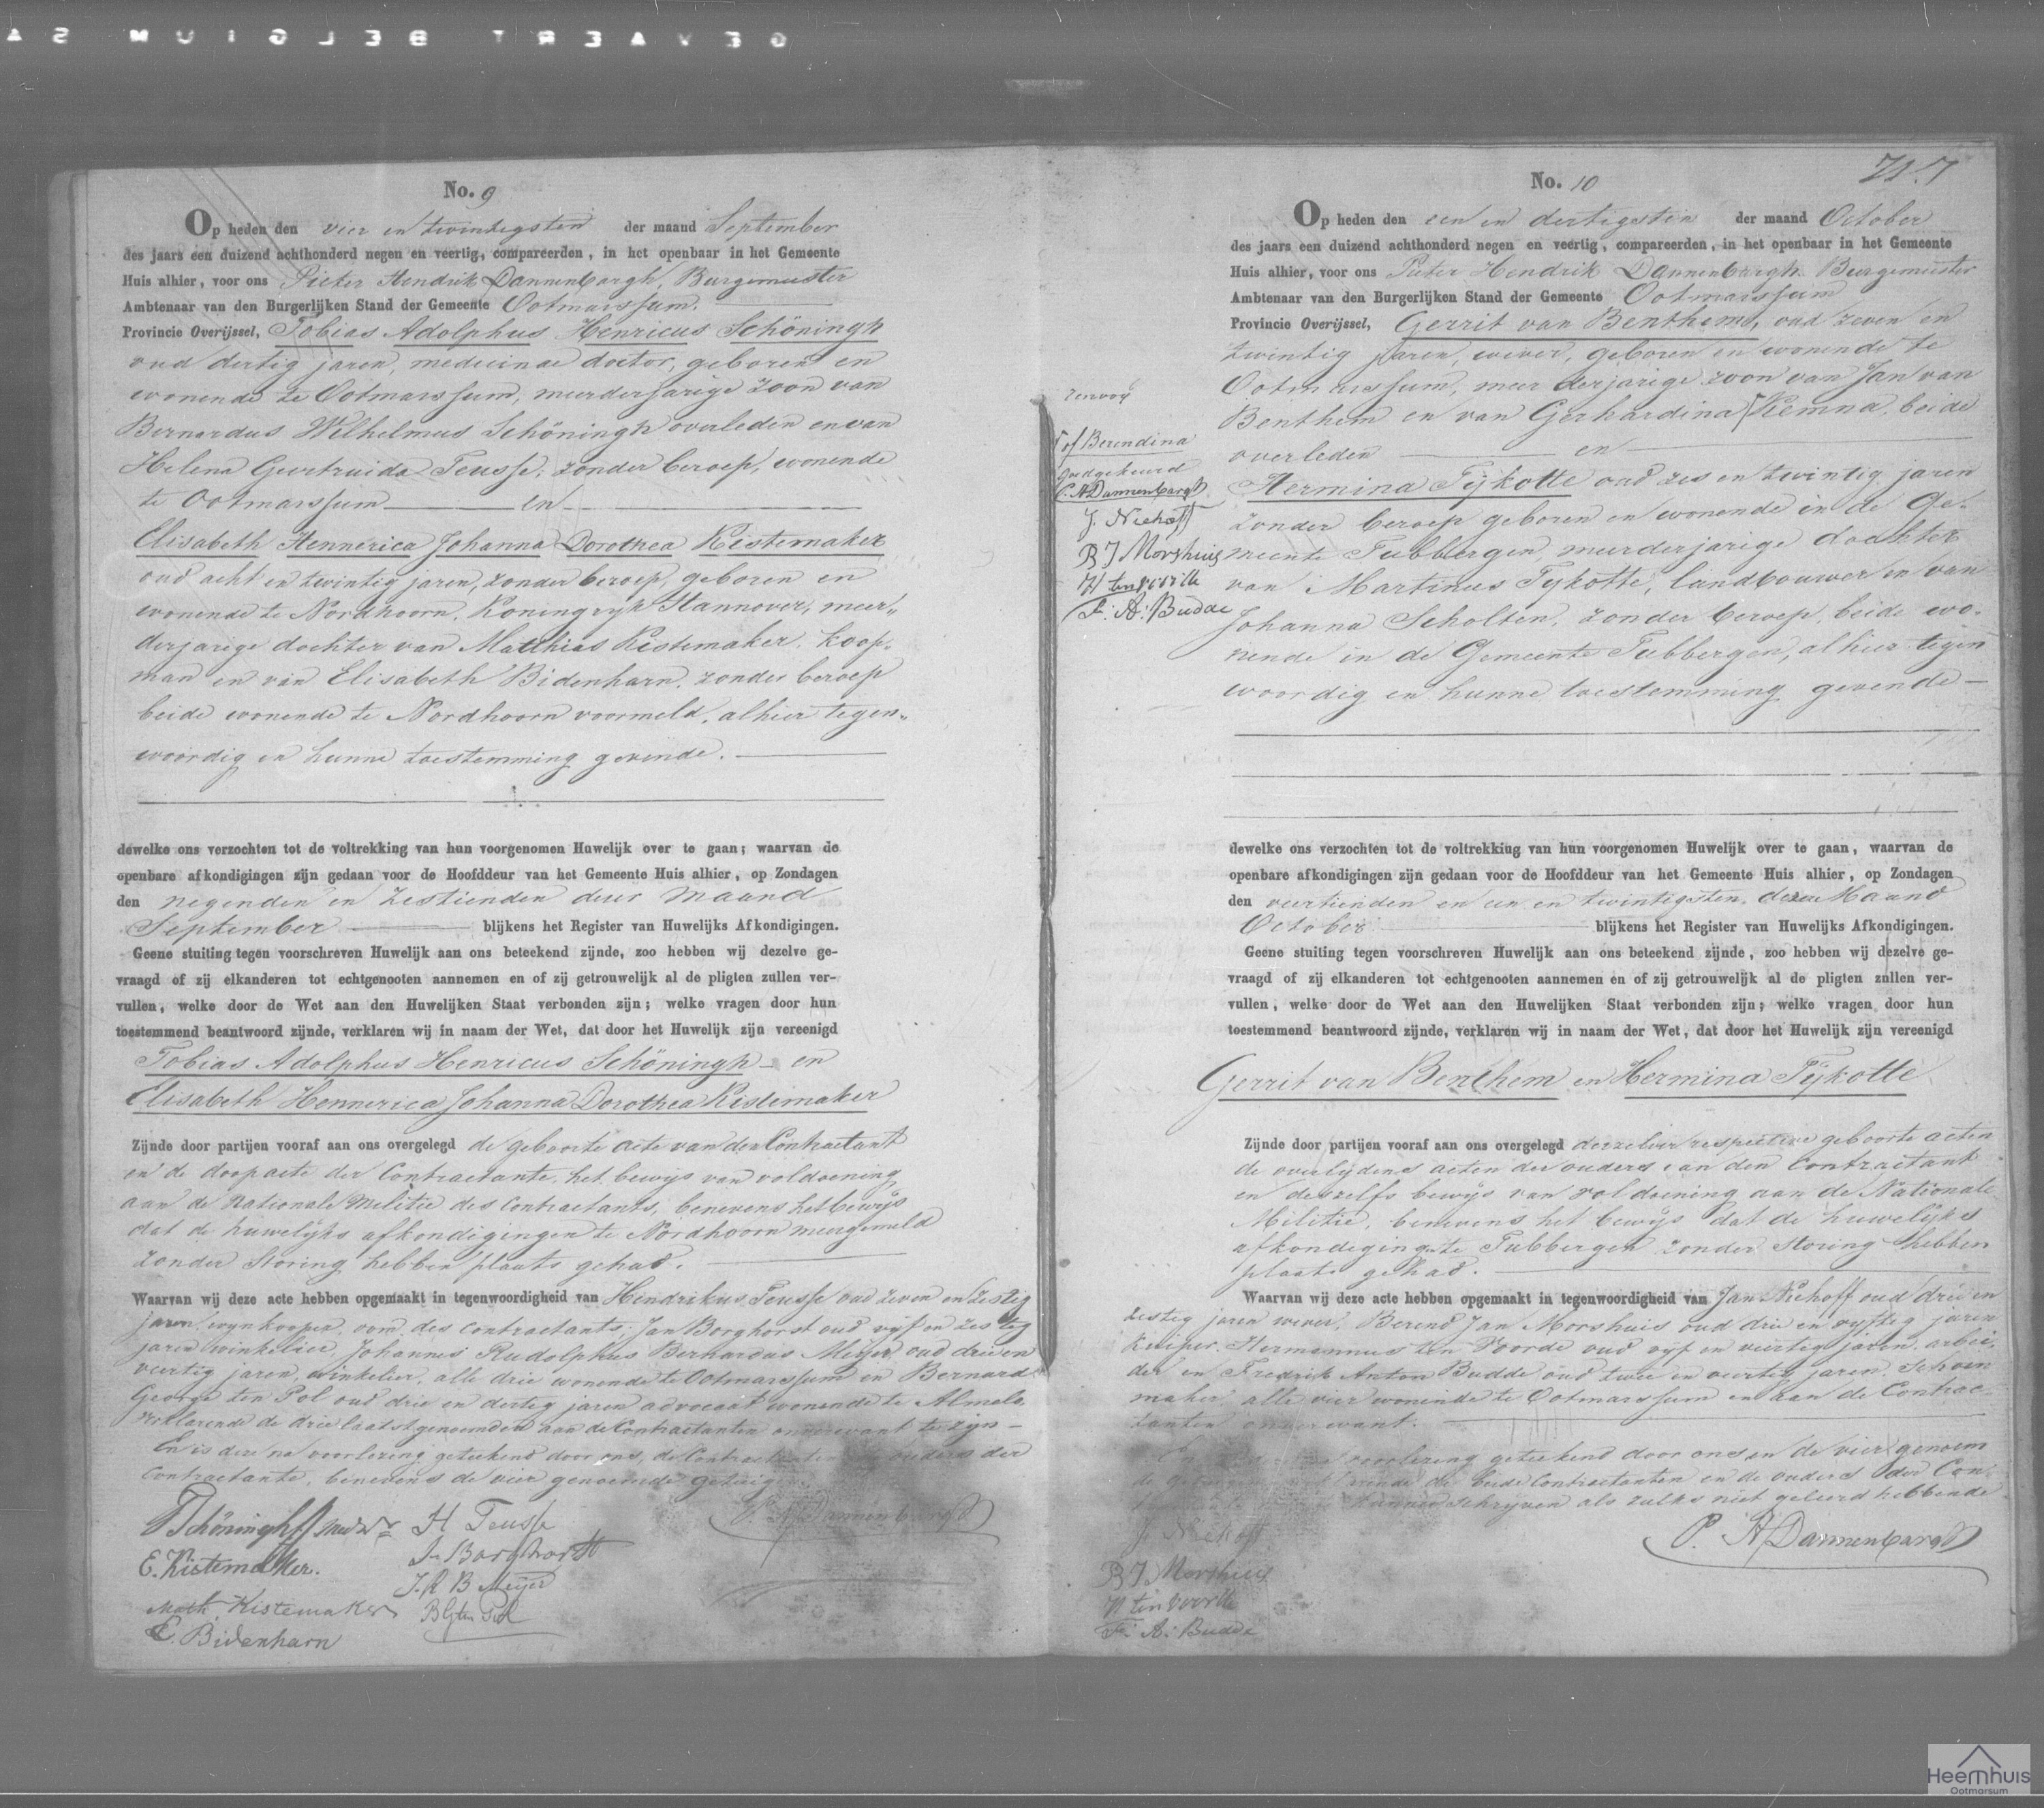 No. 9
Op heden den vier en twintigsten der maand September
des jaars een duizend achthonderd negen en veertig, compareerden, in het openbaar in het Gemeente
Huis alhier, voor ons Pieter Hendrik Dannenbargh, Burgemeester
Ambtenaar van den Burgerlijken Stand der Gemeente Ootmarssum,
Provincie Overijssel, Tobias Adolphus Henricus Schöningh
oud dertig jaren, medicinae doctor, geboren en
wonende te Ootmarssum, meerderjarige zoon van
Bernardus Wilhelmus Schöningh overleden en van
Helena Geertruida Teusse, zonder beroep, wonende
te Ootmarssum en
Elisabeth Hennerica Johanna Dorothea Kistemaker
oud acht en twintig jaren, zonder beroep, geboren en
wonende te Nordhoorn, Koningryk Hannover, meer„
derjarige dochter van Matthias Kistemaker, koop„
man en van Elisabeth Bidenharn, zonder beroep
beide wonende te Nordhoorn voormeld, alhier tegen„
woordig en hunne toestemming gevende.
dewelke ons verzochten tot de voltrekking van hun voorgenomen Huwelijk over te gaan; waarvan de
openbare afkondigingen zijn gedaan voor de Hoofddeur van het Gemeente Huis alhier, op Zondagen
den negenden en zestienden dezer maand
September blijkens het Register van Huwelijks Afkondigingen.
Geene stuiting tegen voorschreven Huwelijk aan ons beteekend zijnde, zoo hebben wij dezelve ge-
vraagd of zij elkanderen tot echtgenooten aannemen en of zij getrouwelijk al de pligten zullen ver-
vullen, welke door de Wet aan den Huwelijken Staat verbonden zijn; welke vragen door hun
toestemmend beantwoord zijnde, verklaren wij in naam der Wet, dat door het Huwelijk zijn vereenigd
Tobias Adolphus Henricus Schöningh en
Elisabeth Hennerica Johanna Dorothea Kistemaker
Zijnde door partijen vooraf aan ons overgelegd de geboorte acte van den Contractant
en de doopacte der Contractante, het bewijs van voldoening
aan de Nationale Militie des Contractants, benevens het bewijs
dat de huwelijks afkondigingen te Nordhoorn meergemeld
zonder storing hebben plaats gehad.
Waarvan wij deze acte hebben opgemaakt in tegenwoordigheid van Hendrikus Teusse oud zeven en zestig
jaren wynkooper, oom des contractants, Jan Borghorst oud vyf en zestig
jaren winkelier, Johannes Rudolphus Bernardus Meijer oud drie en
veertig jaren, winkelier, alle drie wonende te Ootmarssum en Bernard
George ten Pol oud drie en dertig jaren advocaat wonende te Almelo,
verklarende de drie laatstgenoemden aan de Contractanten onverwant te zijn
En is deze na voorlezing geteekend door ons, de Contractanten ouders der
Contractante, benevens de vier genoemde getuigen
Schöningh Med. Dr H Teusse P. H. Dannenbargh
E. Kistemaker. J. Borghorst
J. R B Meijer
Math. Kistemaker BG ten Pol
E. Bidenharn
No. 10
Op heden den een en dertigsten der maand October
des jaars een duizend achthonderd negen en veertig, compareerden, in het openbaar in het Gemeente
Huis alhier, voor ons Pieter Hendrik Dannenbargh Burgemeester
Ambtenaar van den Burgerlijken Stand der Gemeente Ootmarssum
Provincie Overijssel, Gerrit van Benthem, oud zeven en
twintig jaren, wever, geboren en wonende te
Ootmarssum, meerderjarige zoon van Jan van
Benthem en van Gerhardina Kemna, beide
overleden en
Hermina Tijkotte oud zes en twintig jaren
zonder beroep geboren en wonende in de Ge-
meente Tubbergen, meerderjarige dochter
van Martinus Tijkotte, landbouwer en van
Johanna Scholten, zonder beroep, beide wo-
nende in de Gemeente Tubbergen, alhier tegen
woordig en hunne toestemming gevende
renvoy
of Berendina
goedgekeurd
P. H Dannenbargh
J. Niehoff
B J Morshuis
H ten Voorde
F: A: Budde
dewelke ons verzochten tot de voltrekking van hun voorgenomen Huwelijk over te gaan, waarvan de
openbare afkondigingen zijn gedaan voor de Hoofddeur van het Gemeente Huis alhier, op Zondagen
den veertienden en een en twintigsten dezer Maand
October blijkens het Register van Huwelijks Afkondigingen.
Geene stuiting tegen voorschreven Huwelijk aan ons beteekend zijnde, zoo hebben wij dezelve ge-
vraagd of zij elkanderen tot echtgenooten aannemen en of zij getrouwelijk al de pligten zullen ver-
vullen, welke door de Wet aan den Huwelijken Staat verbonden zijn; welke vragen door hun
toestemmend beantwoord zijnde, verklaren wij in naam der Wet, dat door het Huwelijk zijn vereenigd
Gerrit van Benthem en Hermina Tijkotte
Zijnde door partijen vooraf aan ons overgelegd derzelver respective geboorte acten
de overlydens acten der ouders van den Contractant
en deszelfs bewijs van voldoening aan de Nationale
Militie, benevens het bewijs dat de huwelijks
afkondiging te Tubbergen zonder storing hebben
plaats gehad.
Waarvan wij deze acte hebben opgemaakt in tegenwoordigheid van Jan Niehoff oud drie en
zestig jaren wever, Berend Jan Morshuis oud drie en vyftig jaren
kuiper, Hermannus ten Voorde oud vyf en veertig jaren, arbei„
der en Fredrik Anton Budde oud twee en veertig jaren, schoen
maker, alle vier wonende te Ootmarssum en aan de Contrac„
tanten onverwant.
voorlezing geteekend door ons en de vier genoem
de beide Contractanten en de ouders der Con„
schryven als zulks niet geleerd hebbende
J Niehoff P. H Dannenbargh
B J. Morshuis
H ten Voorde
F. A: Budde
Heemhuis
Ootmarsum